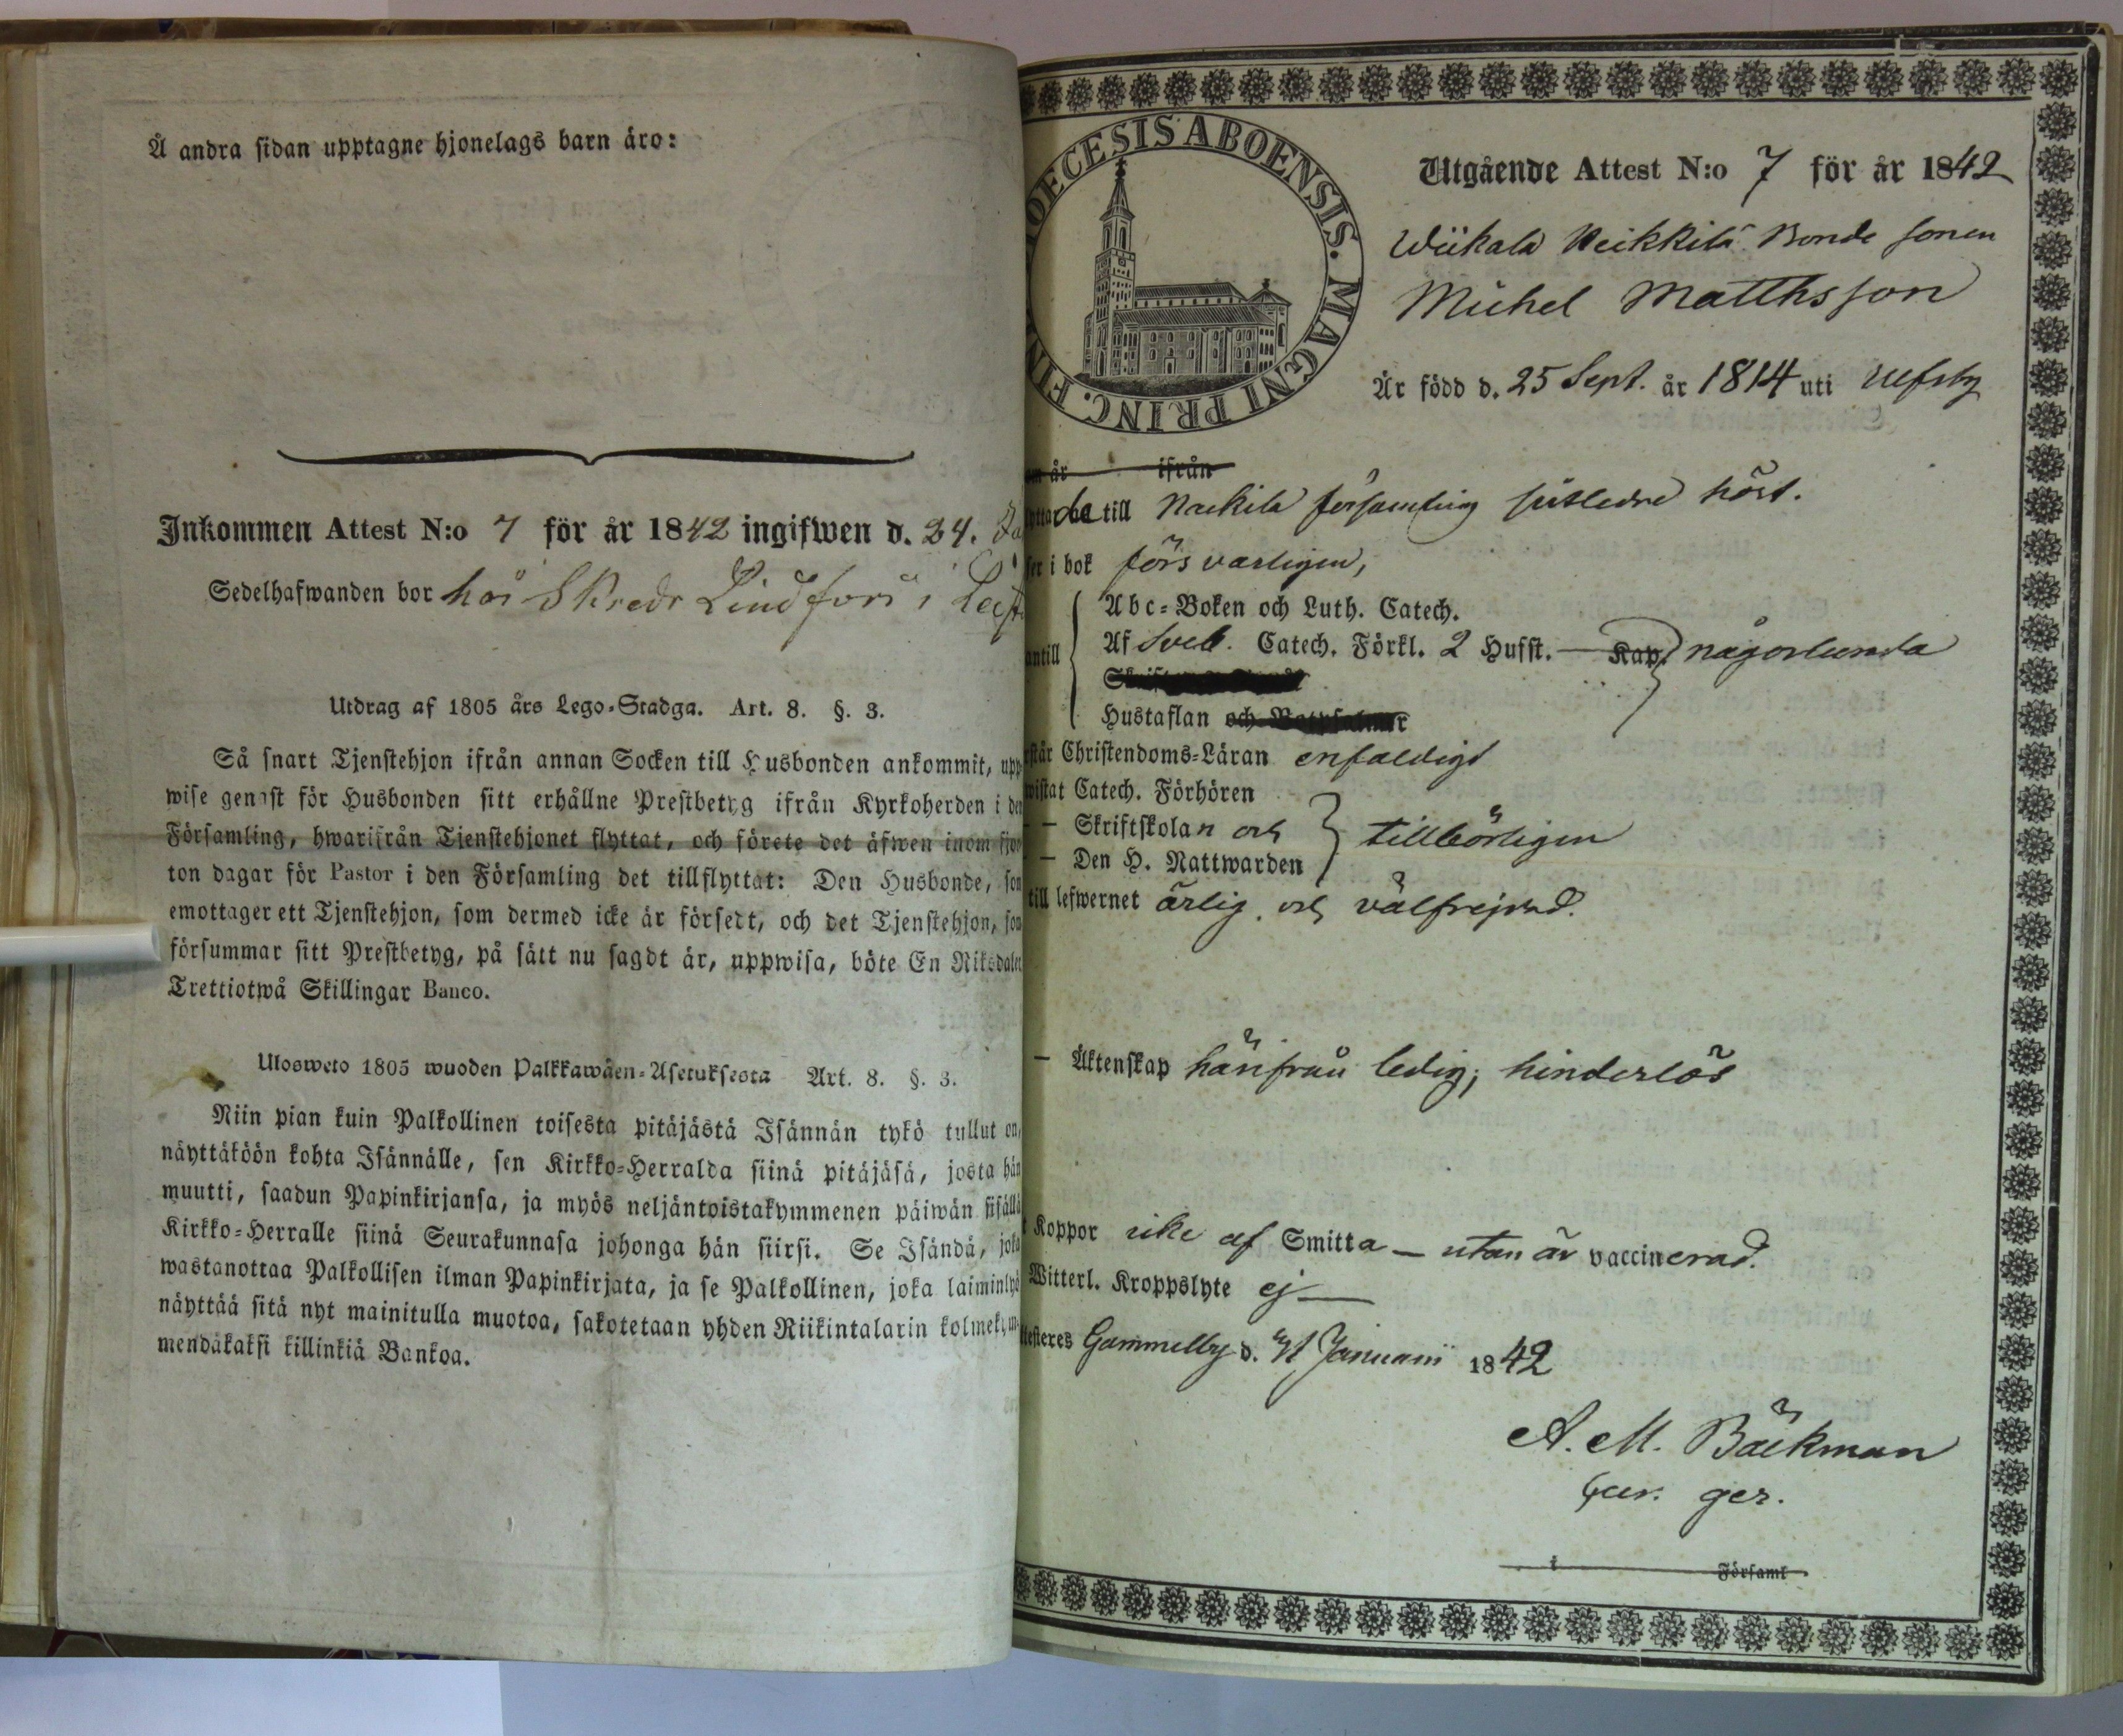 Å andra sidan upptagne hjonelags barn äro:
Inkommen Attest N:o 7 för år 1842 ingifwen d. 24.
Sedelhafwanden bor hos Skredr Lindfors i
Utdrag af 1805 års Lego-Stadga. Art. 8. §. 3.
Så snart Tjenstehjon ifrån annan Socken till Husbonden ankommit, upp-
wise genast för Husbonden sitt erhållne Prestbetyg ifrån Kyrkoherden i den
Församling, hwarifrån Tjenstehjonet flyttat, och förete det äfwen inom fjor-
ton dagar för Pastor i den Församling det tillflyttat: Den Husbonde, som
emottager ett Tjenstehjon, som dermed icke är försedt, och det Tjenstehjon, som
försummar sitt Prestbetyg, på sätt nu sagdt är, uppwisa, böte En Riksdaler
Trettiotwå Skillingar Banco.
Ulosweto 1805 wuoden Palkkawäen-Asetuksesta Art. 8. §. 3.
Niin pian kuin Palkollinen toisesta pitäjästä Isännän tykö tullut on,
näyttäköön kohta Isännälle, sen Kirkko-Herralda siinä pitäjäsä, josta hän
muutti, saadun Papinkirjansa, ja myös neljäntoistakymmenen päiwän sisällä
Kirkko-Herralle siinä Seurakunnasa johonga hän siirsi. Se Isändä, joka
wastanottaa Palkollisen ilman Papinkirjata, ja se Palkollinen, joka laiminlyö
näyttää sitä nyt mainitulla muotoa, sakotetaan yhden Riikintalarin kolmekym-
mendäkaksi killinkiä Bankoa.
DIOECESIS ABOENSIS. MAGNI PRINC. FIN
Utgående Attest N:o 7 för år 1842
Wiikala Heikkilä Bonde sonen
Michel Matthsson
Är född d. 25 Sept. år 1814 uti Ulfsby
om år ifrån
flyttade till Nackila församling sistledne höst.
ser i bok försvarligen,
Abc-Boken och Luth. Catech.
antill Af Sveb. Catech. Förkl. 2 Hufst. — Kap. någorlunda
Hustaflan och
rstår Christendoms-Läran enfaldigt
wistat Catech. Förhören
— Skriftskolan och tillbörligen
— Den H. Nattwarden
till lefwernet ärlig och välfrejdad.
— Äktenskap härifrån ledig; hinderlös
t Koppor icke af Smitta — utan är vaccinerad.
Witterl. Kroppslyte ej —
ttesteres Gammelby d. 21 Januarii 1842
A. M. Bäckman
Cur. ger.
i Församl.